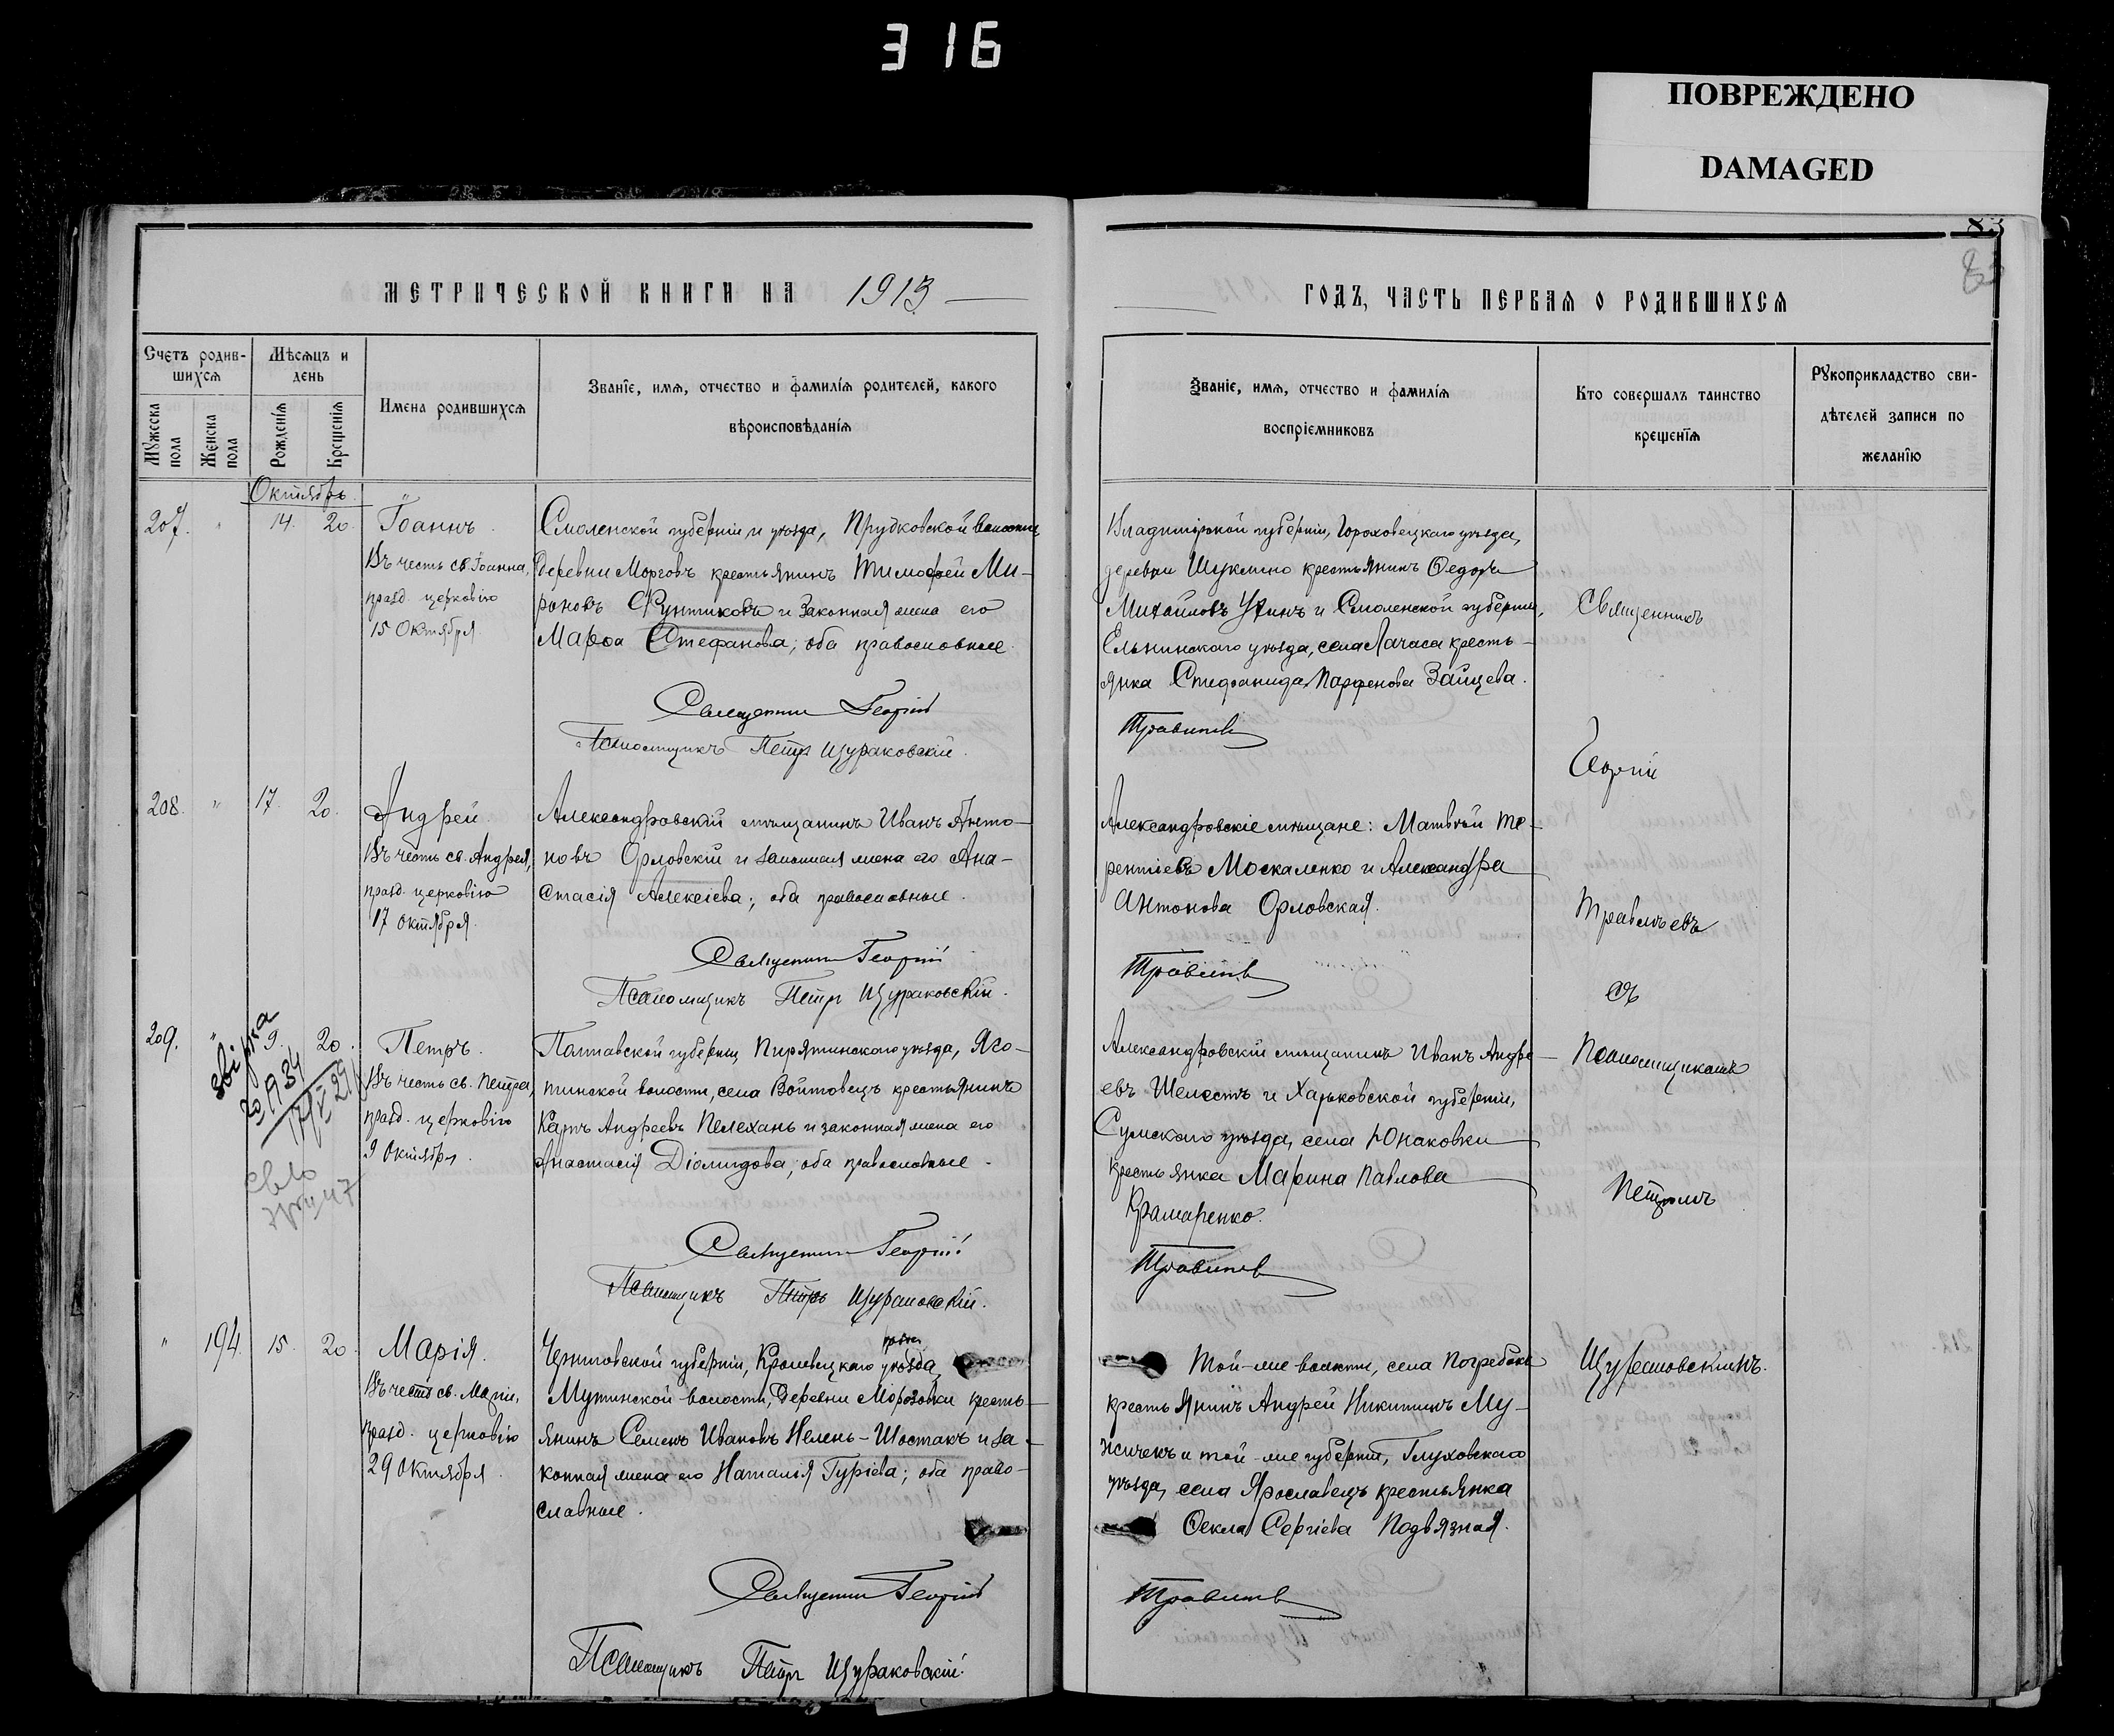 316
ПОВРЕЖДЕНО
DAMAGED
83
МЕТРИЧЕСКОЙ КНИГИ НА 1913
Счетъ родив-
шихся
Мѣсяцъ и
день
Мужеска
пола
Женска
пола
Рожденія
Крещенія
Имена родившихся
Званіе, имя, отчество и фамилія родителей, какого
вѣроисповѣданія
Октябрь
207. " 14. 20.
Іоаннъ.
Въ честь св. Іоанна,
празд. церковію
15 Октября
Смоленской губерніи и уѣзда, Прудковской волости,
деревни Морговъ крестьянинъ Тимофей Ми-
роновъ Фунтиковъ и законная жена его
Марѳа Стефанова; оба православные.
Священникъ Георгій
Псаломщикъ Петръ Щураковскій.
208. " 17. 20.
Андрей.
Въ честь св. Андрея,
празд. церковію
17 октября.
Александровскій мѣщанинъ Иванъ Анто-
новъ Орловскій и законная жена его Ана-
стасія Алексіева; оба православные.
Священникъ Георгій
Псаломщикъ Петръ Щураковскій.
209. " 9. 20.
звірка
Петръ.
Въ честь св. Петра,
празд. церковію
9 Октября.
Полтавской губерніи, Пирятинскаго уѣзда, Яго-
тинской волости, села Войтовецъ крестьянинъ
Карпъ Андреевъ Пелехань и законная жена его
Анастасія Діомидова; оба православные.
Священникъ Георгій
Псаломщикъ Петръ Щураковскій.
" 194. 15. 20.
Марія.
Въ честь св. Маріи,
празд. церковію
29 Октября.
Черниговской губерніи, Кролевецкаго уѣзда,
Мутинской волости, деревни Морозовки кресть-
янинъ Семенъ Ивановъ Нелень-Шостакъ и за-
конная жена его Наталія Гуріева; оба право-
славные.
Священникъ Георгій
Псаломщикъ Петръ Щураковскій.
ГОДЪ, ЧАСТЬ ПЕРВАЯ О РОДИВШИХСЯ
Званіе, имя, отчество и фамилія
воспріемниковъ
Кто совершалъ таинство
крещенія
Рукоприкладство сви-
дѣтелей записи по
желанію
Владимірской губерніи, Гороховецкаго уѣзда,
деревни Шуклино крестьянинъ Ѳедоръ
Михайловъ Утинъ и Смоленской губерніи,
Ельнинскаго уѣзда, села Лачаса кресть-
янка Стефанида Парфенова Зайцева.
Травинъ
Александровскіе мѣщане: Матвѣй Те-
рентіевъ Москаленко и Александра
Антонова Орловская.
Александровскій мѣщанинъ Иванъ Андре-
евъ Шелестъ и Харьковской губерніи,
Сумскаго уѣзда, села Юнаковки
крестьянка Марина Павлова
Крамаренко.
Той-же волости, села Погребокъ
крестьянинъ Андрей Никитинъ Му-
жичекъ и той-же губерніи, Глуховскаго
уѣзда, села Ярославецъ крестьянка
Ѳекла Сергіева Подвязная.
Священникъ
Георгій
съ
Псаломщикомъ
Петромъ
Щураковскимъ.